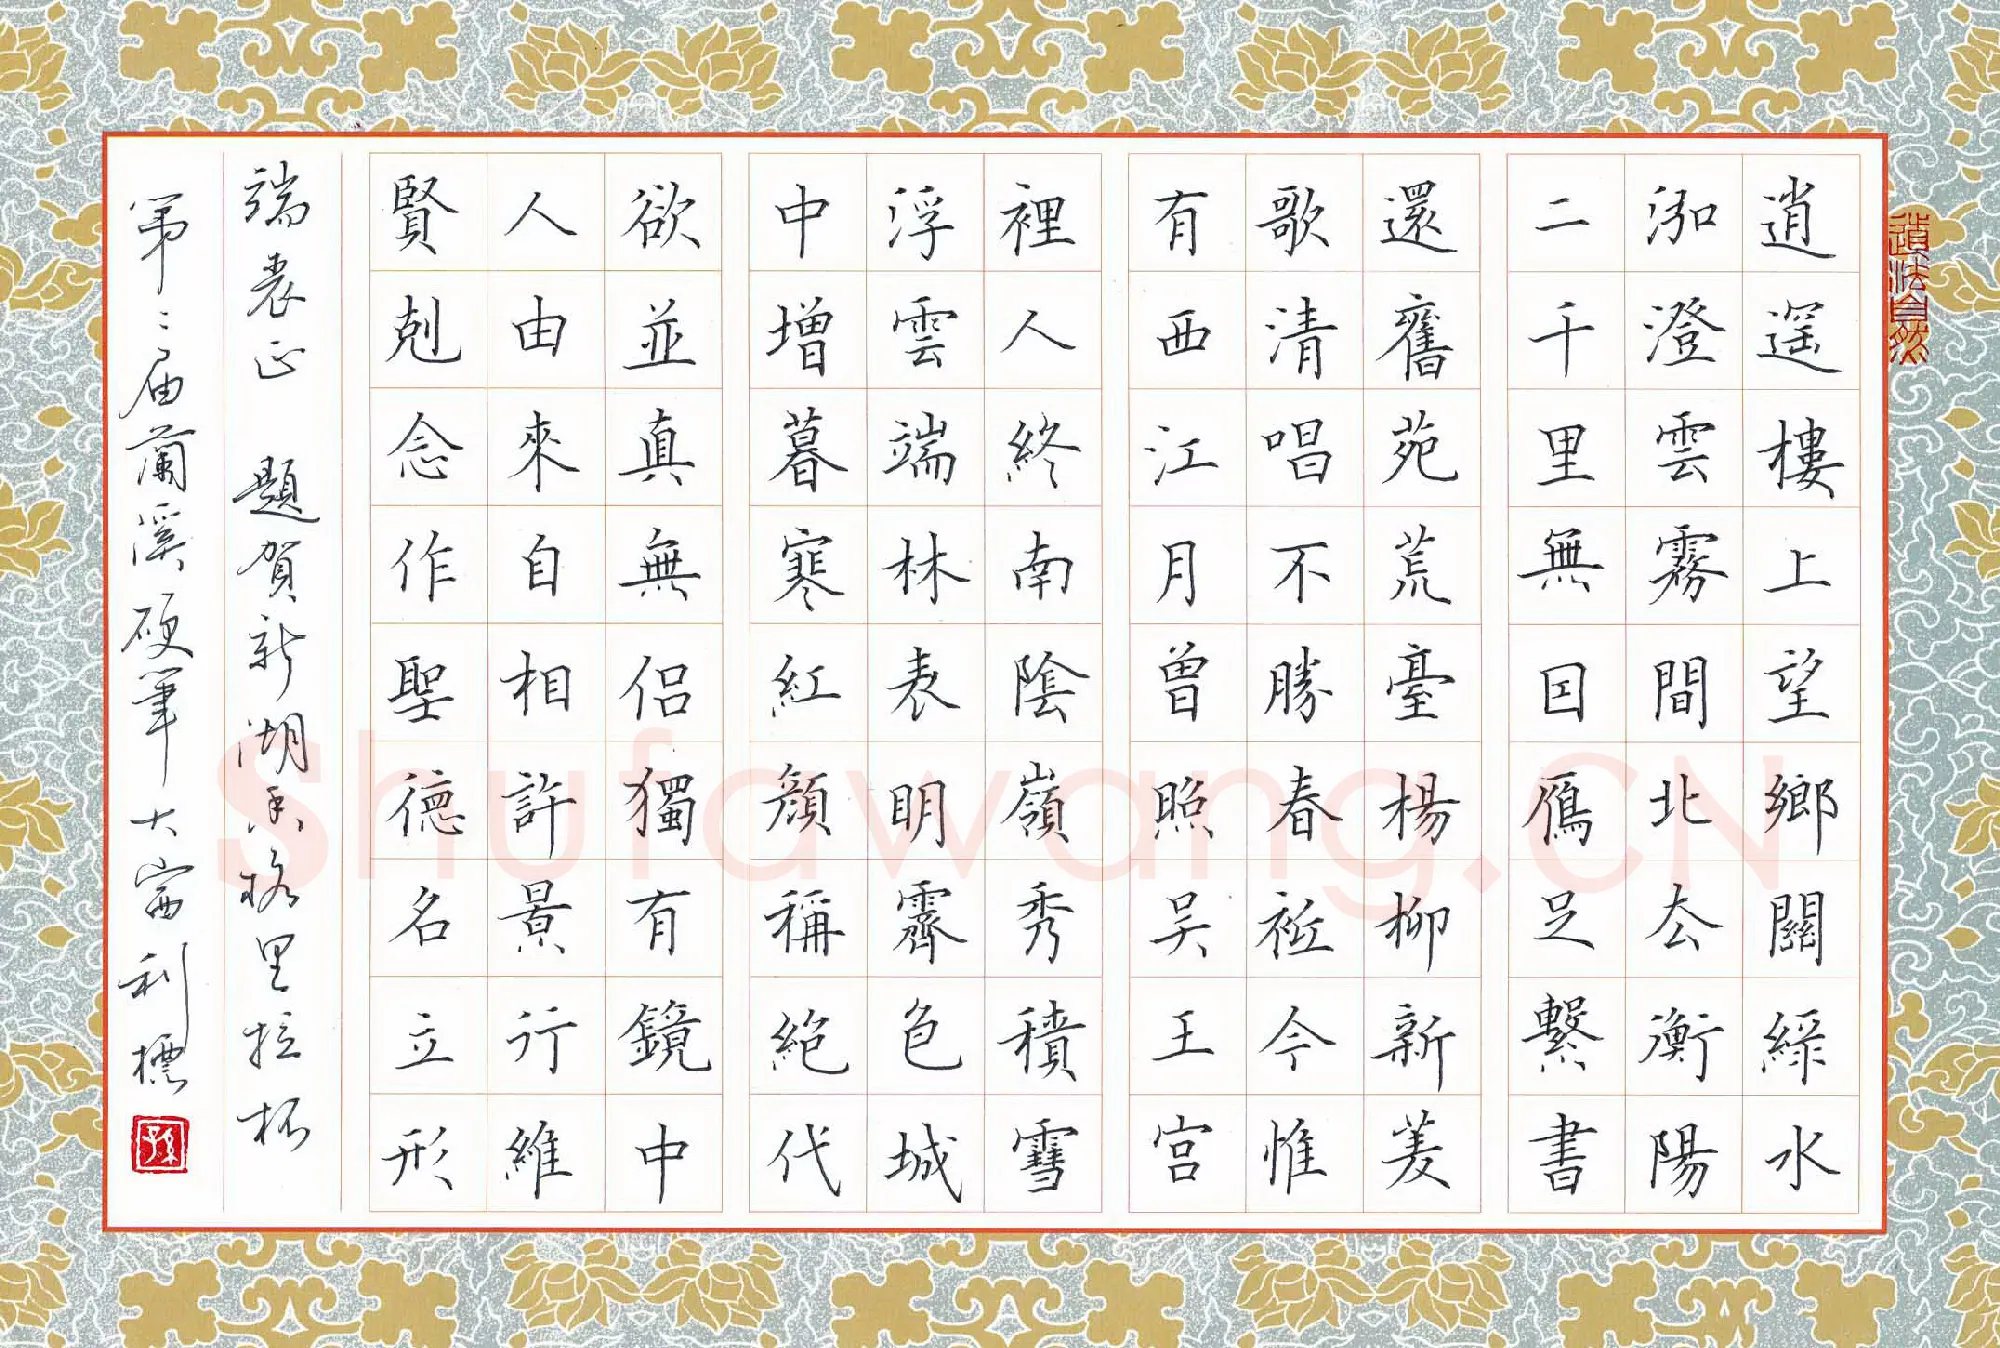 道法自然
逍遥樓上望鄉關綠水
泓澄雲霧間北去衡陽
二千里無因雁足繫書
還舊苑荒臺楊柳新菱
歌清唱不勝春衹今惟
有西江月曾照吴王宫
裡人終南陰嶺秀積雪
浮雲端林表明霽色城
中增暮寒紅顏稱絕代
欲並真無侣獨有鏡中
人由來自相許景行維
賢剋念作聖德名立形
端表正 題賀新湖香格里拉杯
第二届蘭溪硬筆大賽利標
Shufawang.CN